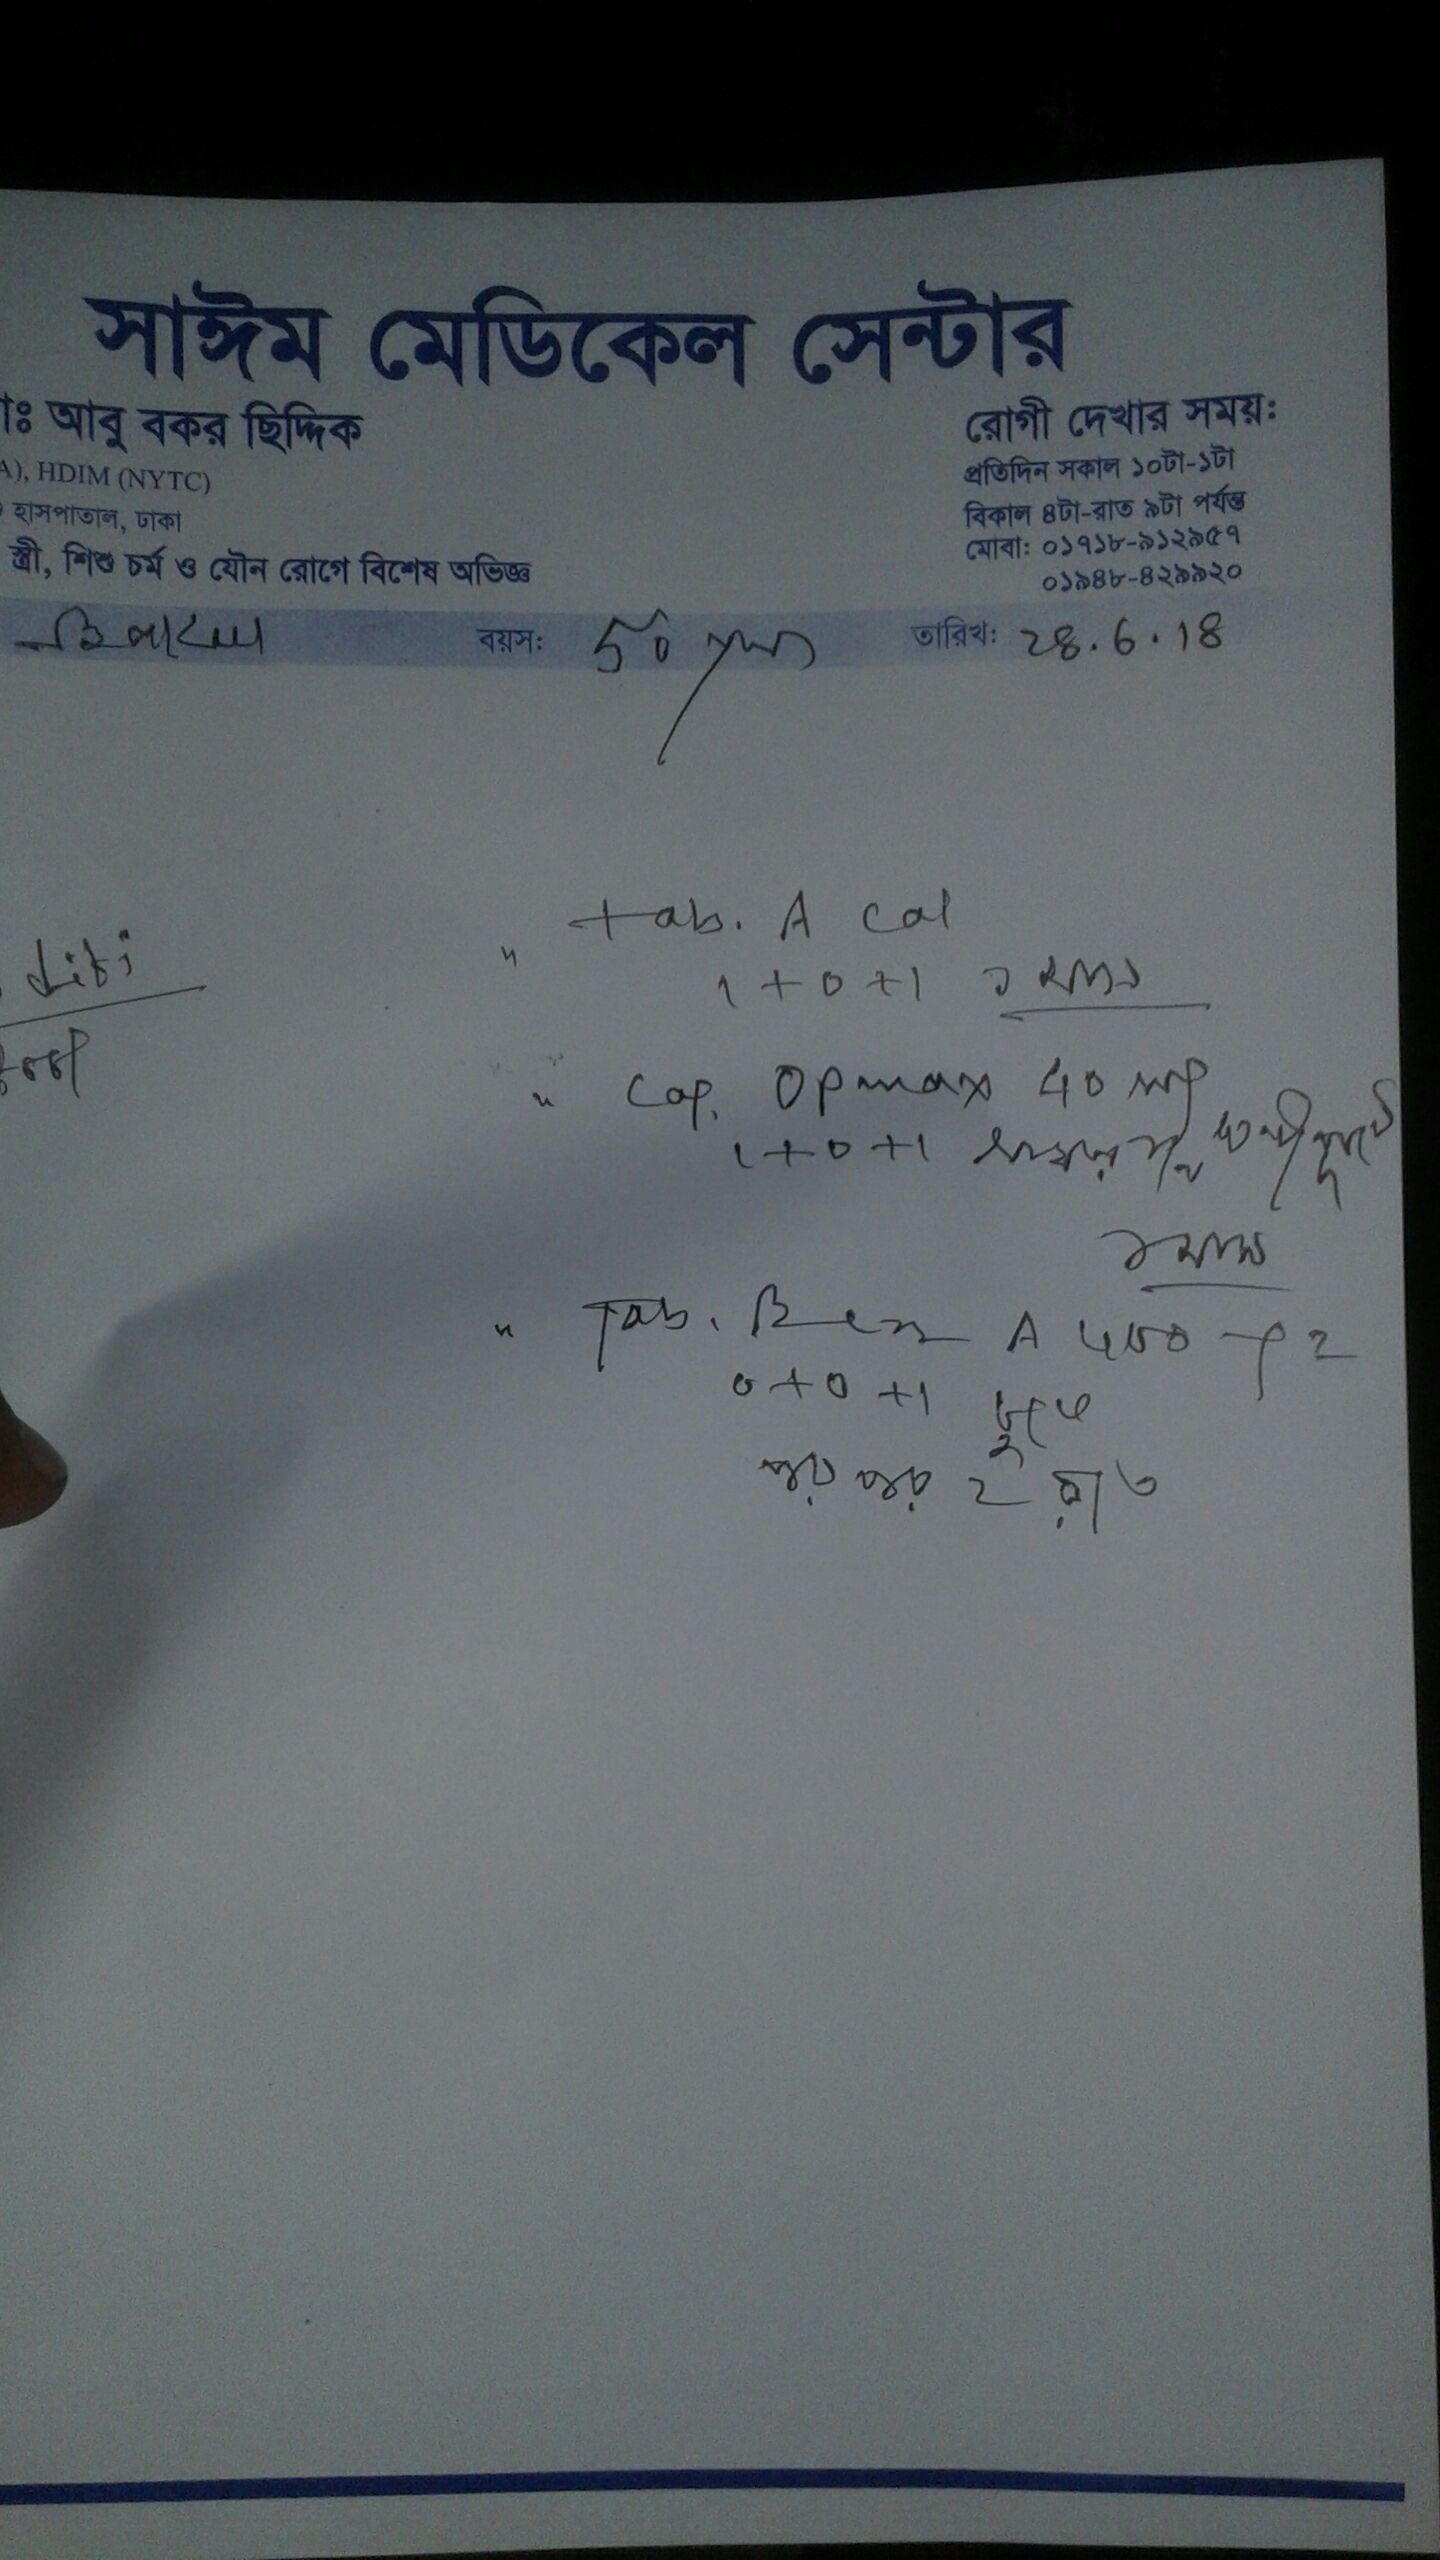 সাঈম মেডিকেল সেন্টার
াঃ আবু বকর ছিদ্দিক
A), HDIM (NYTC)
হাসপাতাল, ঢাকা
স্ত্রী, শিশু চর্ম ও যৌন রোগে বিশেষ অভিজ্ঞ
রোগী দেখার সময়ঃ
প্রতিদিন সকাল ১০টা-১টা
বিকাল ৪টা-রাত ৯টা পর্যন্ত
মোবাঃ ০১৭১৮-৯১২৯৫৭
০১৯৪৮-৪২৯৯২০
বয়সঃ 50 yrs তারিখঃ 28.6.18
" tab. A cal
1+0+1 ১ মাস
" Cap. Opmax 40 mg
1+0+1
১ মাস
" Tab. Ben A 400 mg 2
0+0+1 চুষে
পর পর 2 রাত